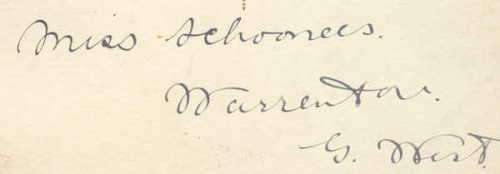 Miss Schoonees.
Warrenton.
G. West.